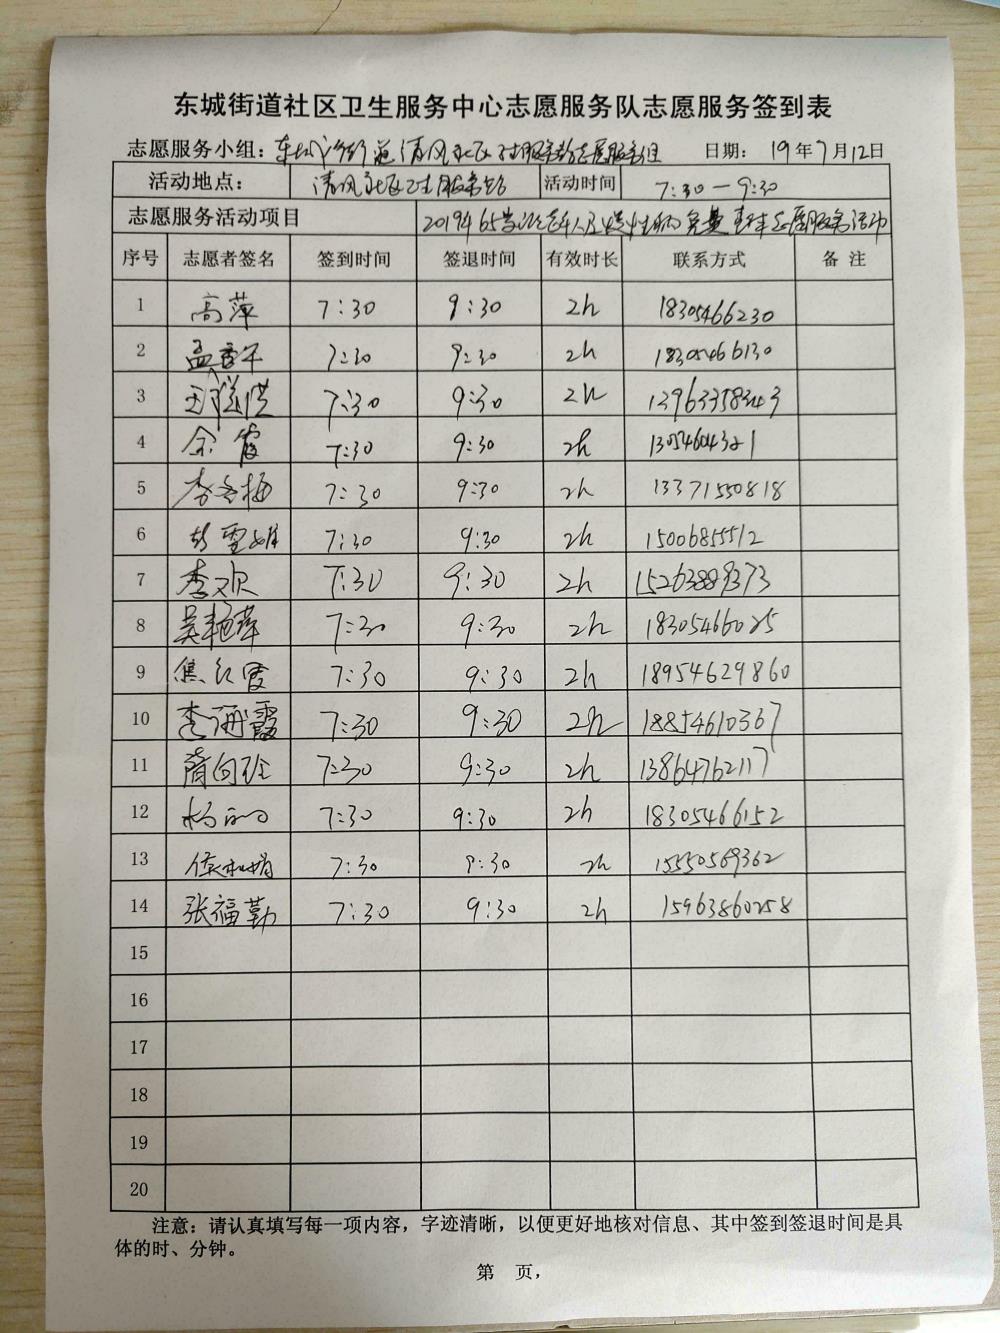 东城街道社区卫生服务中心志愿服务队志愿服务签到表
志愿服务小组：东城街道清风社区卫生服务站志愿服务组 日期：19年7月12日
活动地点： 清风社区卫生服务站 活动时间 7:30—9:30
志愿服务活动项目 2019年65岁以上老年人及慢性病免费查体志愿服务活动
序号 志愿者签名 签到时间 签退时间 有效时长 联系方式 备 注
1 高萍 7:30 9:30 2h 18305466230
2 7:30 9:30 2h 18305466130
3 7:30 9:30 2h 13963358343
4 余霞 7:30 9:30 2h 13054604321
5 李冬梅 7:30 9:30 2h 13371550818
6 7:30 9:30 2h 15006855512
7 李欢 7:30 9:30 2h 15263889373
8 吴艳萍 7:30 9:30 2h 18305466025
9 焦红霞 7:30 9:30 2h 18954629860
10 李海霞 7:30 9:30 2h 18854610367
11 隋向玲 7:30 9:30 2h 13864762117
12 杨丽 7:30 9:30 2h 18305466152
13 7:30 9:30 2h 15550569362
14 张福勤 7:30 9:30 2h 15963860258
15
16
17
18
19
20
注意：请认真填写每一项内容，字迹清晰，以便更好地核对信息、其中签到签退时间是具
体的时、分钟。
第 页，